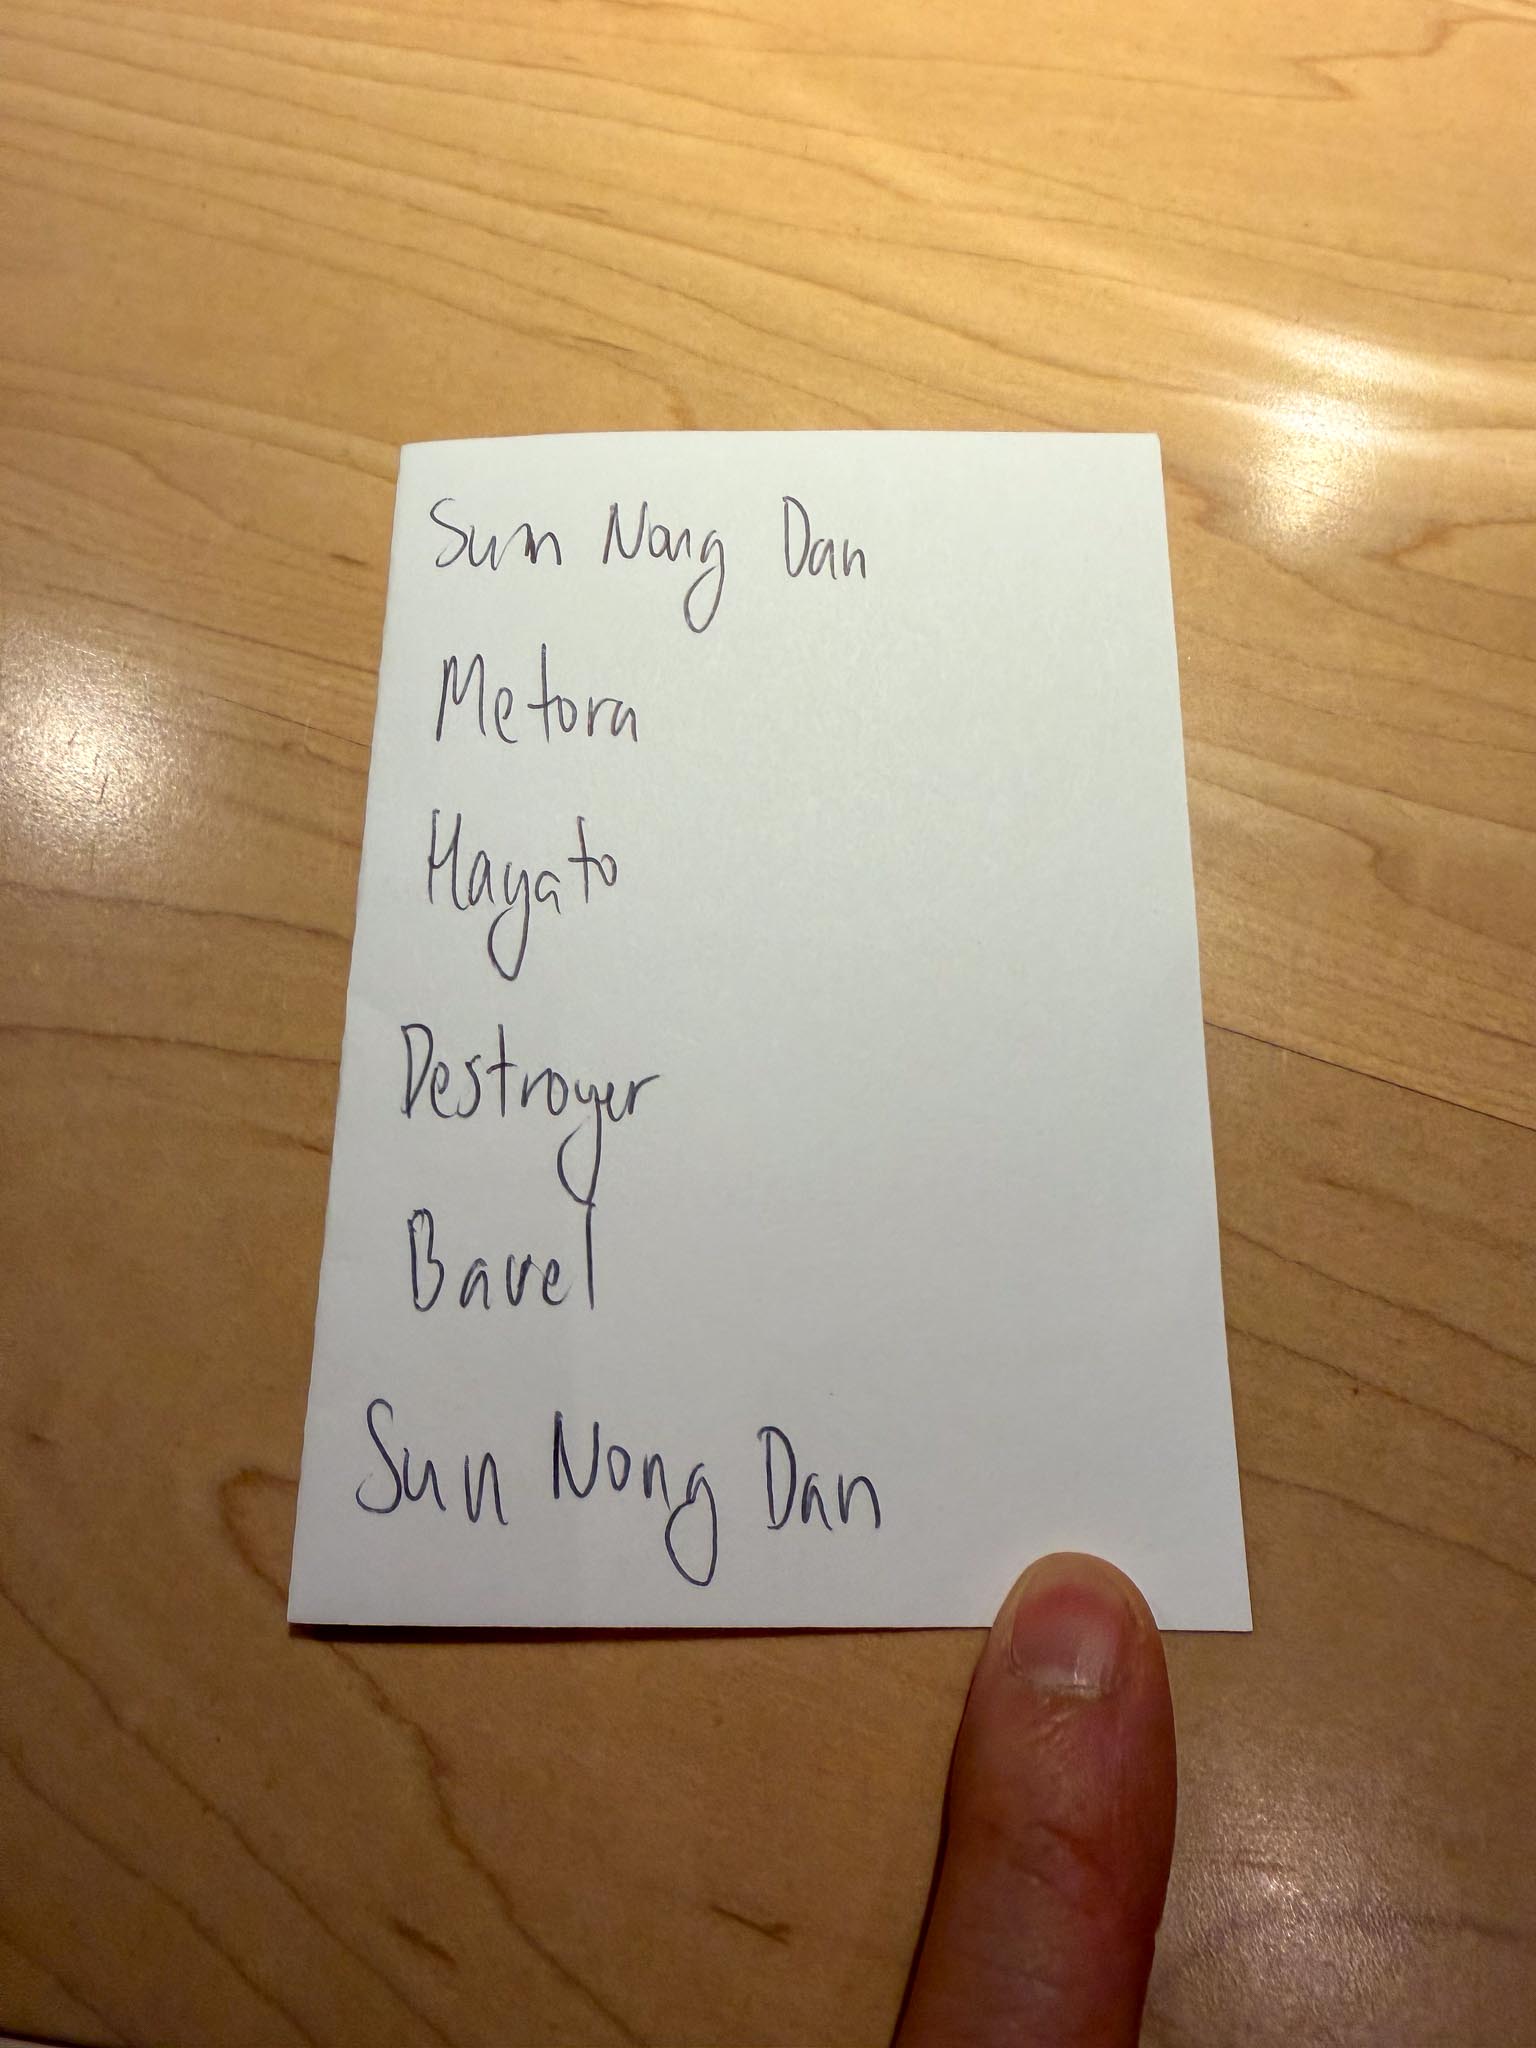 Sun Nong Dan
Metora
Hayato
Destroyer
Bavel
Sun Nong Dan